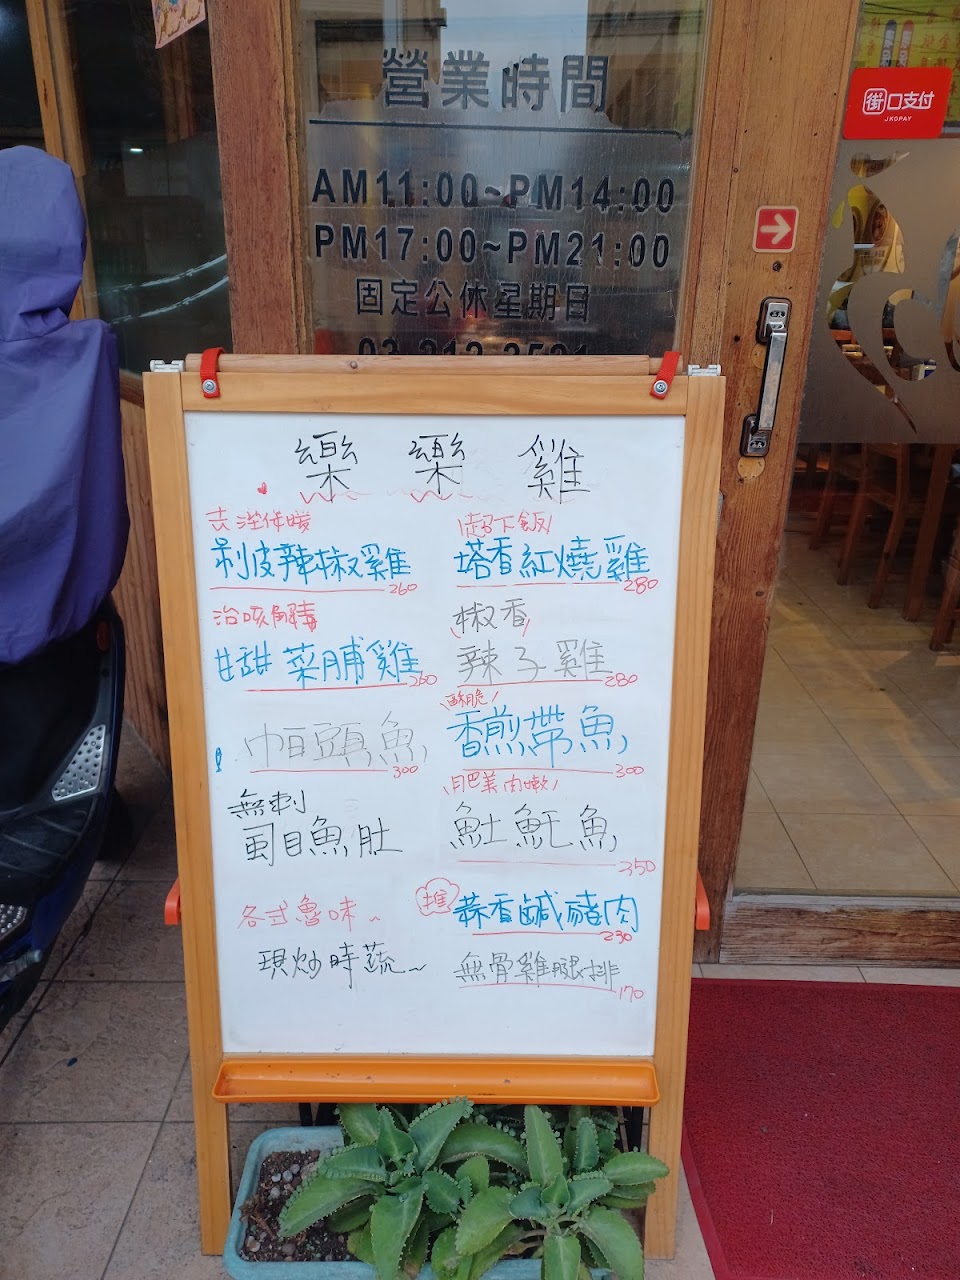 營業時間
AM11:00~PM14:00
PM17:00~PM21:00
固定公休星期日
街口支付
JKOPAY
樂樂雞
去溼保暖
剝皮辣椒雞
260
治咳解毒
甘甜菜脯雞
260
帕頭魚
300
無刺
虱目魚肚
各式魯味~
現炒時蔬~
超下飯
塔香紅燒雞
280
椒香
辣子雞
280
酥脆
香煎帶魚
300
肥美肉嫩
魠魠魚
350
推
蒜香鹹豬肉
230
無骨雞腿排
170